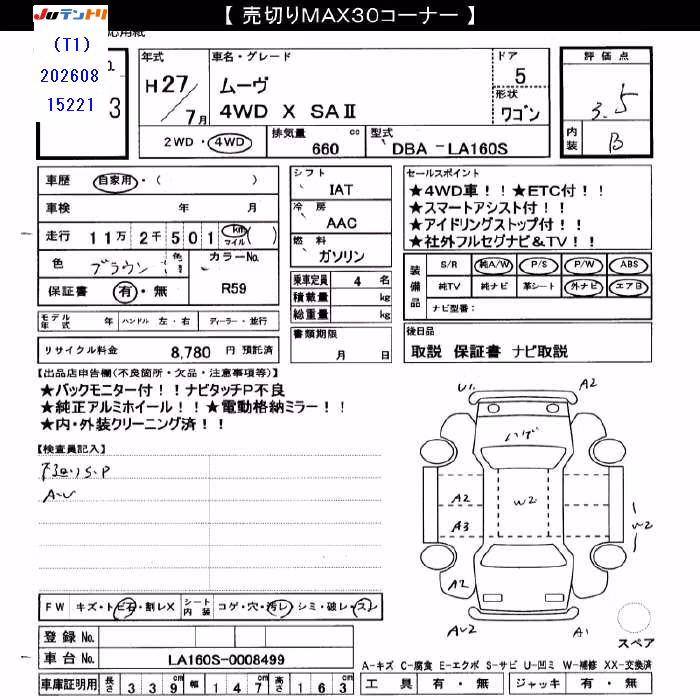 【 売切りMAX30コーナー 】
JUテントリ
(T1)
202608
15221
3
年式
H27/7月
車名・グレード
ムーヴ
4WD X SAⅡ
ドア
5
形状
ワゴン
評価点
3.5
内装
B
2WD・4WD
排気量
660 cc
型式
DBA -LA160S
車歴
自家用・( )
車検 年 月
走行 11万2千501 km マイル ( )
色 ブラウン
カラーNo.
R59
保証書 有・無
シフト
IAT
冷房
AAC
燃料
ガソリン
乗車定員 4 名
積載量 kg
総重量 kg
書類期限
月 日
セールスポイント
★4WD車!!★ETC付!!
★スマートアシスト付!!
★アイドリングストップ付!!
★社外フルセグナビ&TV!!
装備品
S/R 純A/W P/S P/W ABS
純TV 純ナビ 革シート 外ナビ エアB
ナビ型番:
モデル年式 年 ハンドル 左・右 ディーラー・並行
リサイクル料金 8,780 円 預託済
後日品
取説 保証書 ナビ取説
【出品店申告欄(不良箇所・欠品・注意事項等)】
★バックモニター付!!ナビタッチP不良
★純正アルミホイール!!★電動格納ミラー!!
★内・外装クリーニング済!!
【検査員記入】
A-U
U1
A2
ハゲ
A2
A3
W2
W2
A2
AU2
A1
スペア
FW キズ・トビ石・割レX
シート内装 コゲ・穴・汚レ・シミ・破レ・スレ
登録 No.
車台 No. LA160S-0008499
A-キズ C-腐食 E-エクボ S-サビ U-凹ミ W-補修 XX-交換済
車庫証明用 長さ 339 幅 147 高さ 163
工具 有・無 ジャッキ 有・無